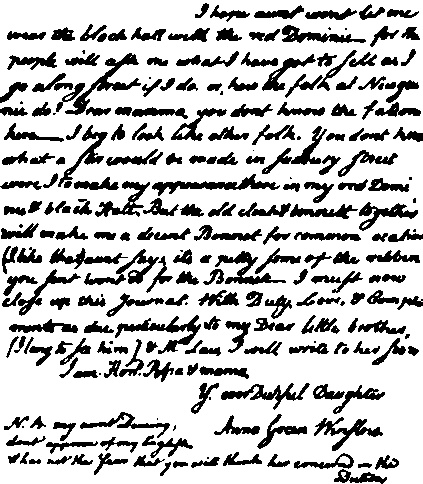 I hope aunt wont let me
wear the black hatt with the red Dominie— for the
people will ask me what I have got to sell as I
go along street if I do. or, how the folk at Newgui
nie do? Dear mamma, you dont know the fation
here— I beg to look like other folk. You dont kno
what a stir would be made in sudbury street
were I to make my appearance there in my red Domi
nie & black Hatt. But the old cloak & bonnett together
will make me a decent Bonnet for common ocation
(I like that) aunt says, its a pitty some of the ribbins
you sent wont do for the Bonnet— I must now
close up this Journal. With Duty, Love, & Compli
ments as due, perticularly to my Dear little brother,
(I long to see him) & Mrs Law, I will write to her soon
I am Hond Papa & mama,
Yr ever Dutiful Daughter
Anna Green Winslow.
N.B. my aunt Deming,
dont approve of my English.
& has not the fear that you will think her concerned in the
Diction